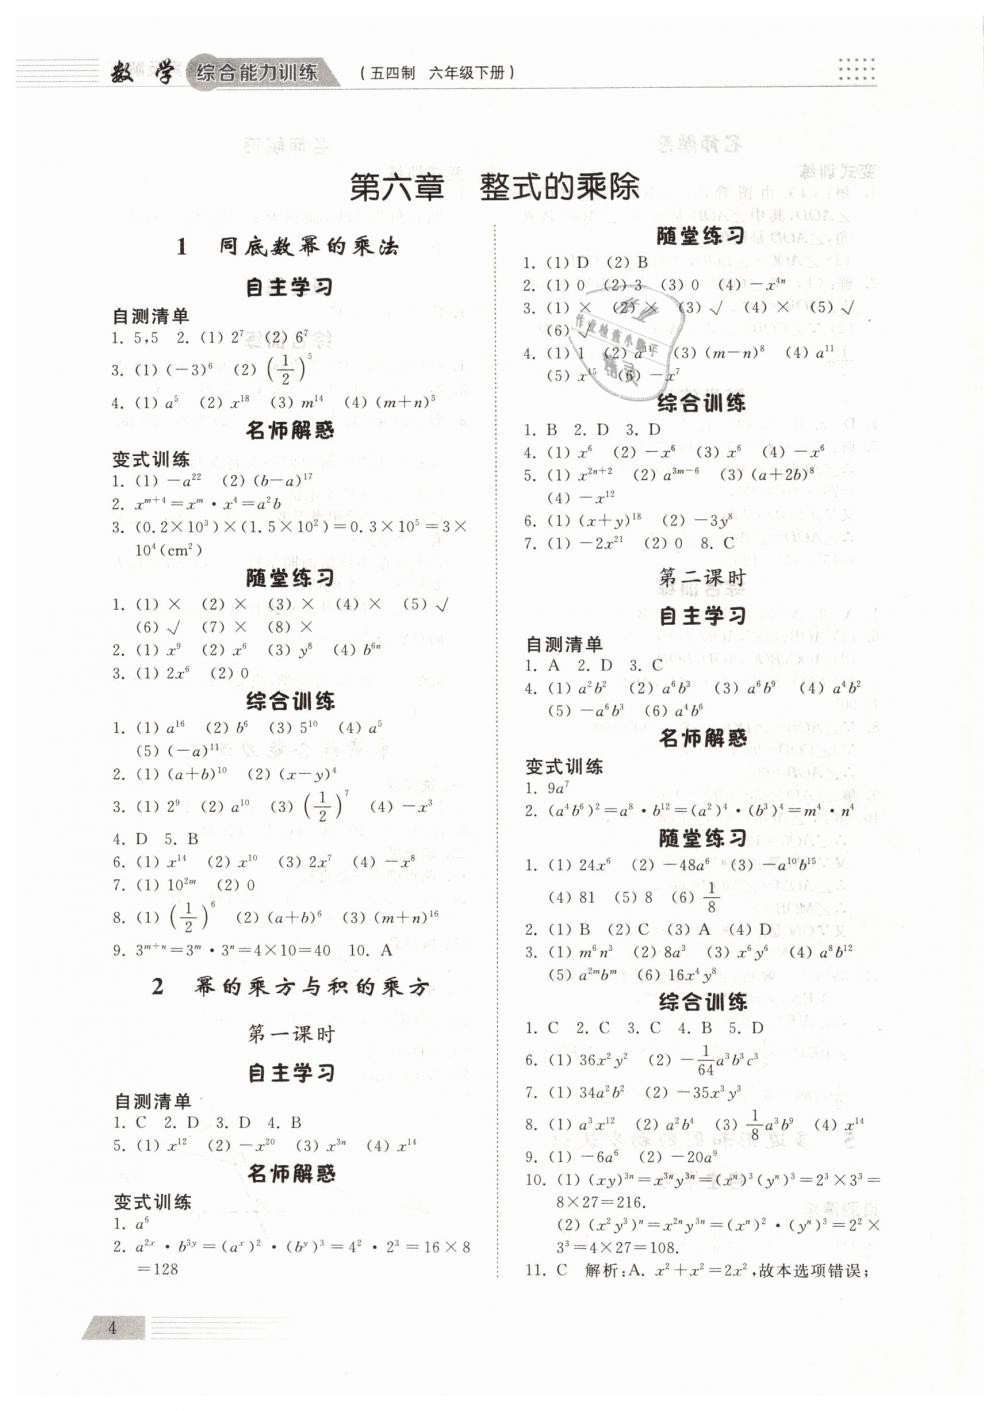 数学 综合能力训练 (五四制 六年级下册)
第六章 整式的乘除
1 同底数幂的乘法
自主学习
自测清单
1. 5,5 2. (1) 2⁷ (2) 6⁷
3. (1) (−3)⁶ (2) (1/2)⁵
4. (1) a⁵ (2) x¹⁸ (3) m¹⁴ (4) (m+n)⁵
名师解惑
变式训练
1. (1) −a²² (2) (b−a)¹⁷
2. xᵐ⁺⁴=xᵐ·x⁴=a²b
3. (0.2×10³)×(1.5×10²)=0.3×10⁵=3×
10⁴(cm²)
随堂练习
1. (1) × (2) × (3) × (4) × (5) √
(6) √ (7) × (8) ×
2. (1) x⁹ (2) x⁶ (3) y⁸ (4) b⁶ⁿ
3. (1) 2x⁶ (2) 0
综合训练
1. (1) a¹⁶ (2) b⁶ (3) 5¹⁰ (4) a⁵
(5) (−a)¹¹
2. (1) (a+b)¹⁰ (2) (x−y)⁴
3. (1) 2⁹ (2) a¹⁰ (3) (1/2)⁷ (4) −x³
4. D 5. B
6. (1) x¹⁴ (2) x¹⁰ (3) 2x⁷ (4) −x⁸
7. (1) 10²ᵐ (2) 0
8. (1) (1/2)⁶ (2) (a+b)⁶ (3) (m+n)¹⁶
9. 3ᵐ⁺ⁿ=3ᵐ·3ⁿ=4×10=40 10. A
2 幂的乘方与积的乘方
第一课时
自主学习
自测清单
1. C 2. D 3. D 4. B
5. (1) x¹² (2) −x²⁰ (3) x³ⁿ (4) x¹⁴
名师解惑
变式训练
1. a⁶
2. a²ˣ·b³ʸ=(aˣ)²·(bʸ)³=4²·2³=16×8
=128
随堂练习
1. (1) D (2) B
2. (1) 0 (2) 3 (3) 0 (4) −x⁴ⁿ
3. (1) × (2) × (3) √ (4) × (5) √
(6) √
4. (1) 1 (2) a (3) (m−n)⁸ (4) a¹¹
(5) x¹⁵ (6) −x⁷
综合训练
1. B 2. D 3. D
4. (1) x⁶ (2) −x⁶ (3) x⁶ (4) −x⁶
5. (1) x²ⁿ⁺² (2) a³ᵐ⁻⁶ (3) (a+2b)⁸
(4) −x¹²
6. (1) (x+y)¹⁸ (2) −3y⁸
7. (1) −2x²¹ (2) 0 8. C
第二课时
自主学习
自测清单
1. A 2. D 3. C
4. (1) a²b² (2) a⁶b³ (3) a⁶b⁹ (4) a⁴b²
(5) −a⁶b³ (6) a⁴b⁶
名师解惑
变式训练
1. 9a⁷
2. (a⁴b⁶)²=a⁸·b¹²=(a²)⁴·(b³)⁴=m⁴·n⁴
随堂练习
1. (1) 24x⁶ (2) −48a⁶ (3) −a¹⁰b¹⁵
(4) 81 (5) 8 (6) 1/8
2. (1) B (2) C (3) A (4) D
3. (1) m⁶n³ (2) 8a³ (3) x⁶y⁶ (4) a⁸b¹²
(5) a²ᵐbᵐ (6) 16x⁴y⁸
综合训练
1. C 2. C 3. C 4. B 5. D
6. (1) 36x²y² (2) −1/64a³b³c³
7. (1) 34a²b² (2) −35x³y³
8. (1) a³x¹² (2) a²b⁴ (3) 1/8a³b⁹ (4) x¹⁴
9. (1) −6a⁶ (2) −20a⁹
10. (1) (xy)³ⁿ=x³ⁿy³ⁿ=(xⁿ)³(yⁿ)³=2³×3³=
8×27=216.
(2) (x²y³)ⁿ=x²ⁿy³ⁿ=(xⁿ)²·(yⁿ)³=2²×
3³=4×27=108.
11. C 解析:A. x²+x²=2x²,故本选项错误;
4